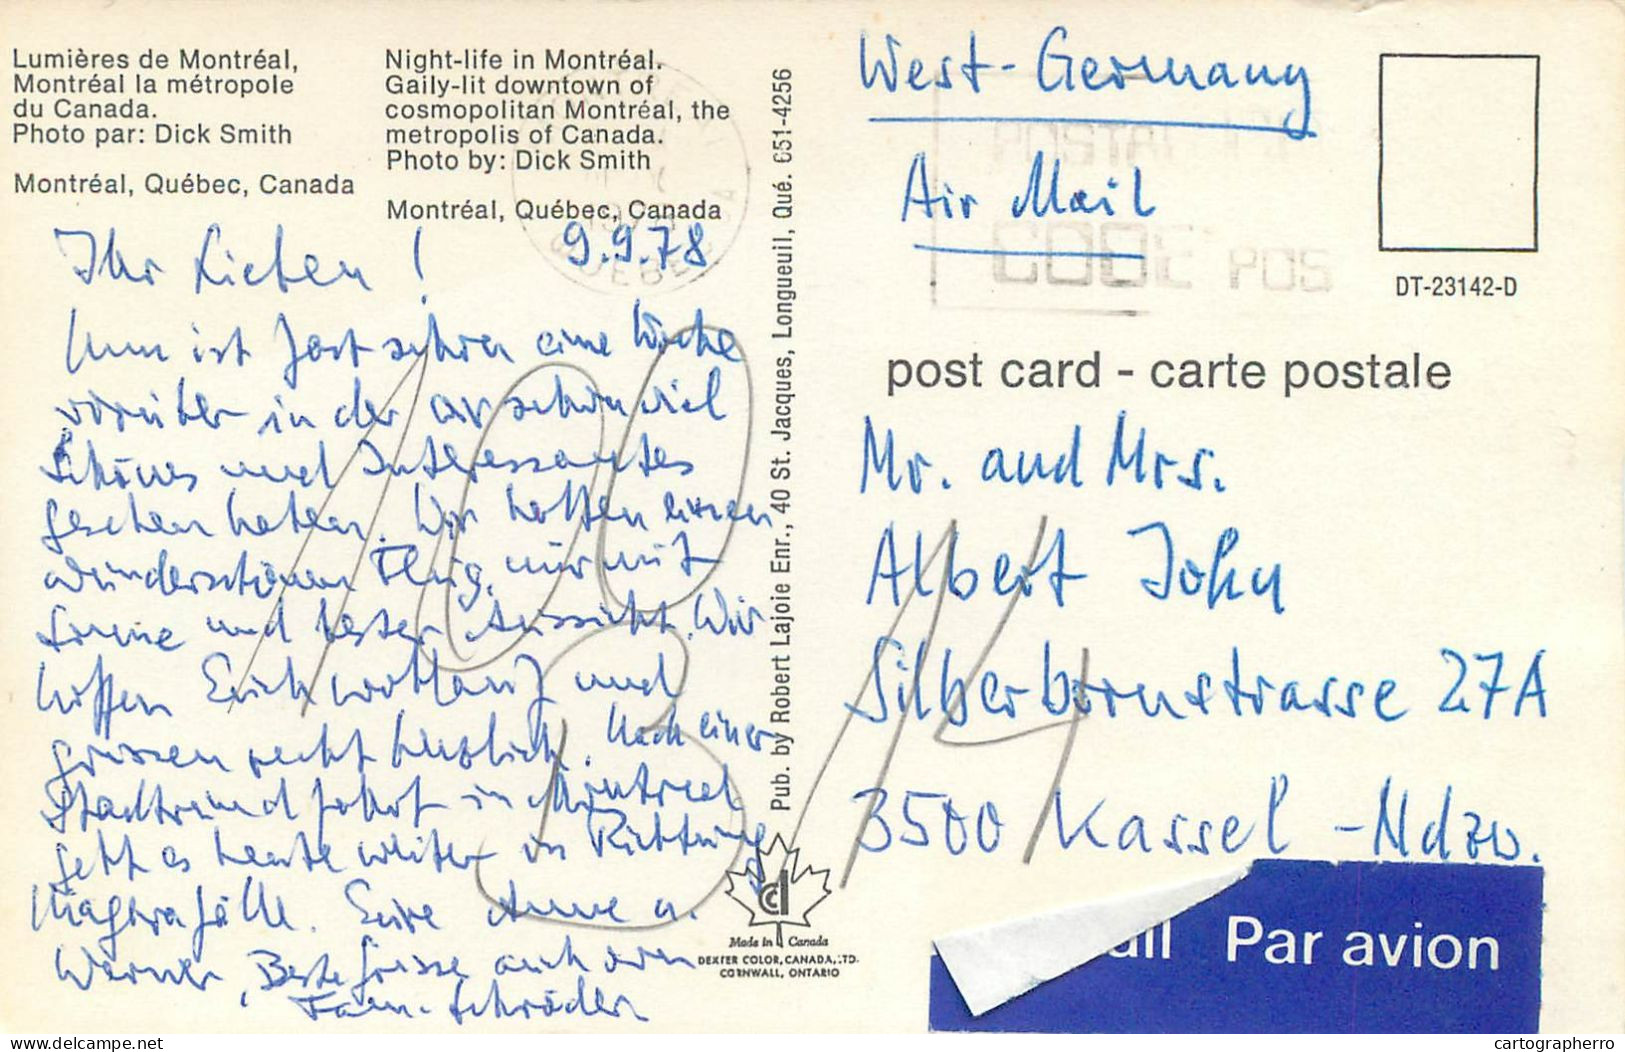 Lumières de Montréal,
Montréal la métropole
du Canada.
Photo par: Dick Smith
Montréal, Québec, Canada
Night-life in Montréal.
Gaily-lit downtown of
cosmopolitan Montréal, the
metropolis of Canada.
Photo by: Dick Smith
Montréal, Québec, Canada
9.9.78
Ihr Lieben!
Nun ist fast schon eine Woche
vorüber in der wir schon viel
Schönes und Interessantes
gesehen haben. Wir hatten einen
wunderschönen Flug, nur mit
Sonne und bester Aussicht. Wir
hoffen Euch wohlauf und
grüssen recht herzlich. Nach einer
Stadtrundfahrt in Montreal
geht es heute weiter in Richtung
Niagarafälle. Eure Anne u.
Werner, Beste Grüsse auch von
Fam. Schröder
Pub. by Robert Lajoie Enr., 40 St. Jacques, Longueuil, Qué. 651-4256
Made in Canada
DEXTER COLOR, CANADA, LTD.
CORNWALL, ONTARIO
West-Germany
Air Mail
POSTAL
CODE POS
DT-23142-D
post card - carte postale
Mr. and Mrs.
Albert John
Silberbornstrasse 27A
3500 Kassel - Ndzw.
ail Par avion
delcampe.net
cartographerro